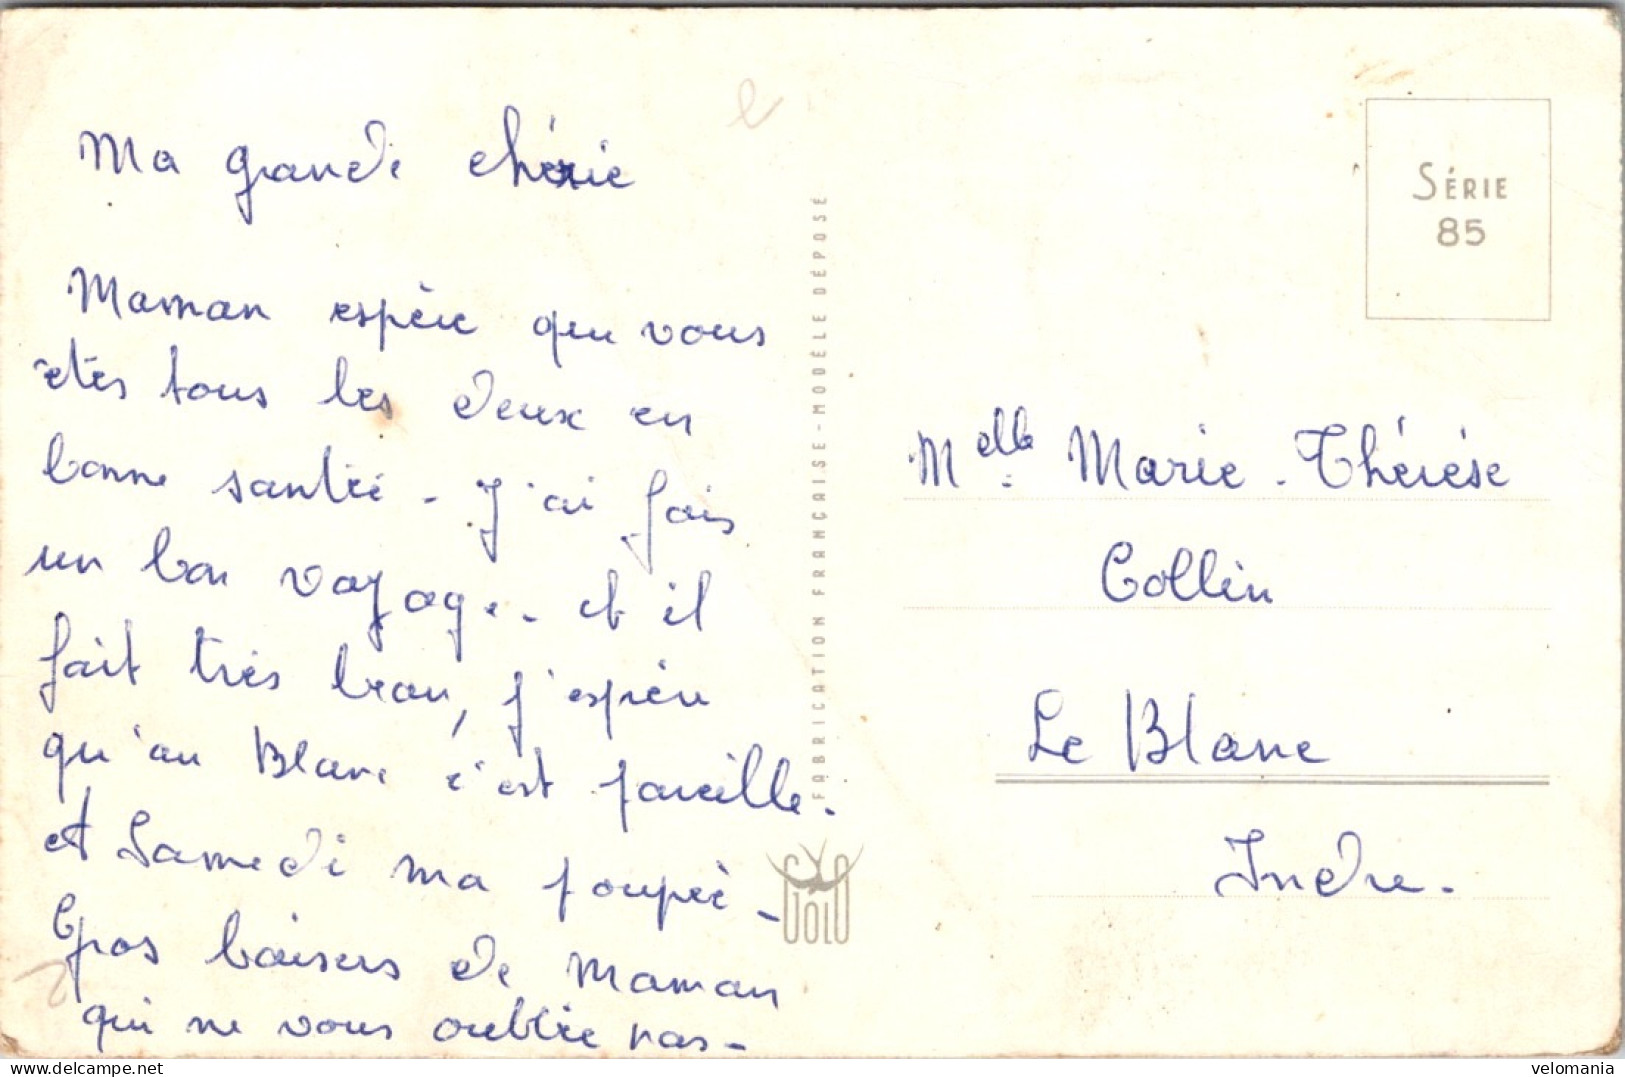 Ma grande chérie
Maman espère que vous
êtes tous les deux en
bonne santée - J'ai fais
un bon voyage - et il
fait très beau, j'espère
qu'au Blanc c'est pareille.
et Samedi ma poupée -
Gros baisers de Maman
qui ne vous oublie pas -
FABRICATION FRANÇAISE - MODÈLE DÉPOSÉ
SÉRIE
85
Melle Marie-Thérèse
Collin
Le Blanc
Indre.
delcampe.net
velomania